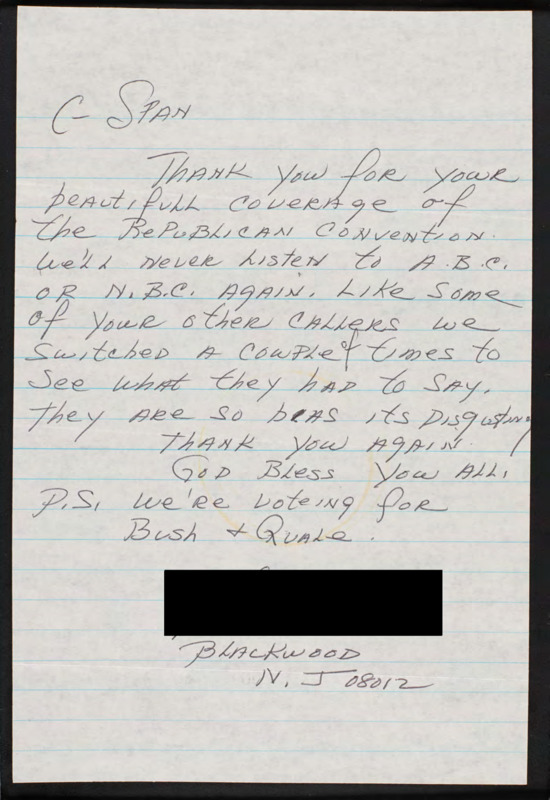 C-Span
Thank you for your
beautifull coverage of
the Republican Convention.
We'll never listen to A.B.C.
or N.B.C. again. Like some
of your other callers we
switched a couple of times to
see what they had to say.
they are so beas its disgusting
thank you again.
God Bless you all.
P.S. we're voteing for
Bush + Quale.
Blackwood
N.J 08012